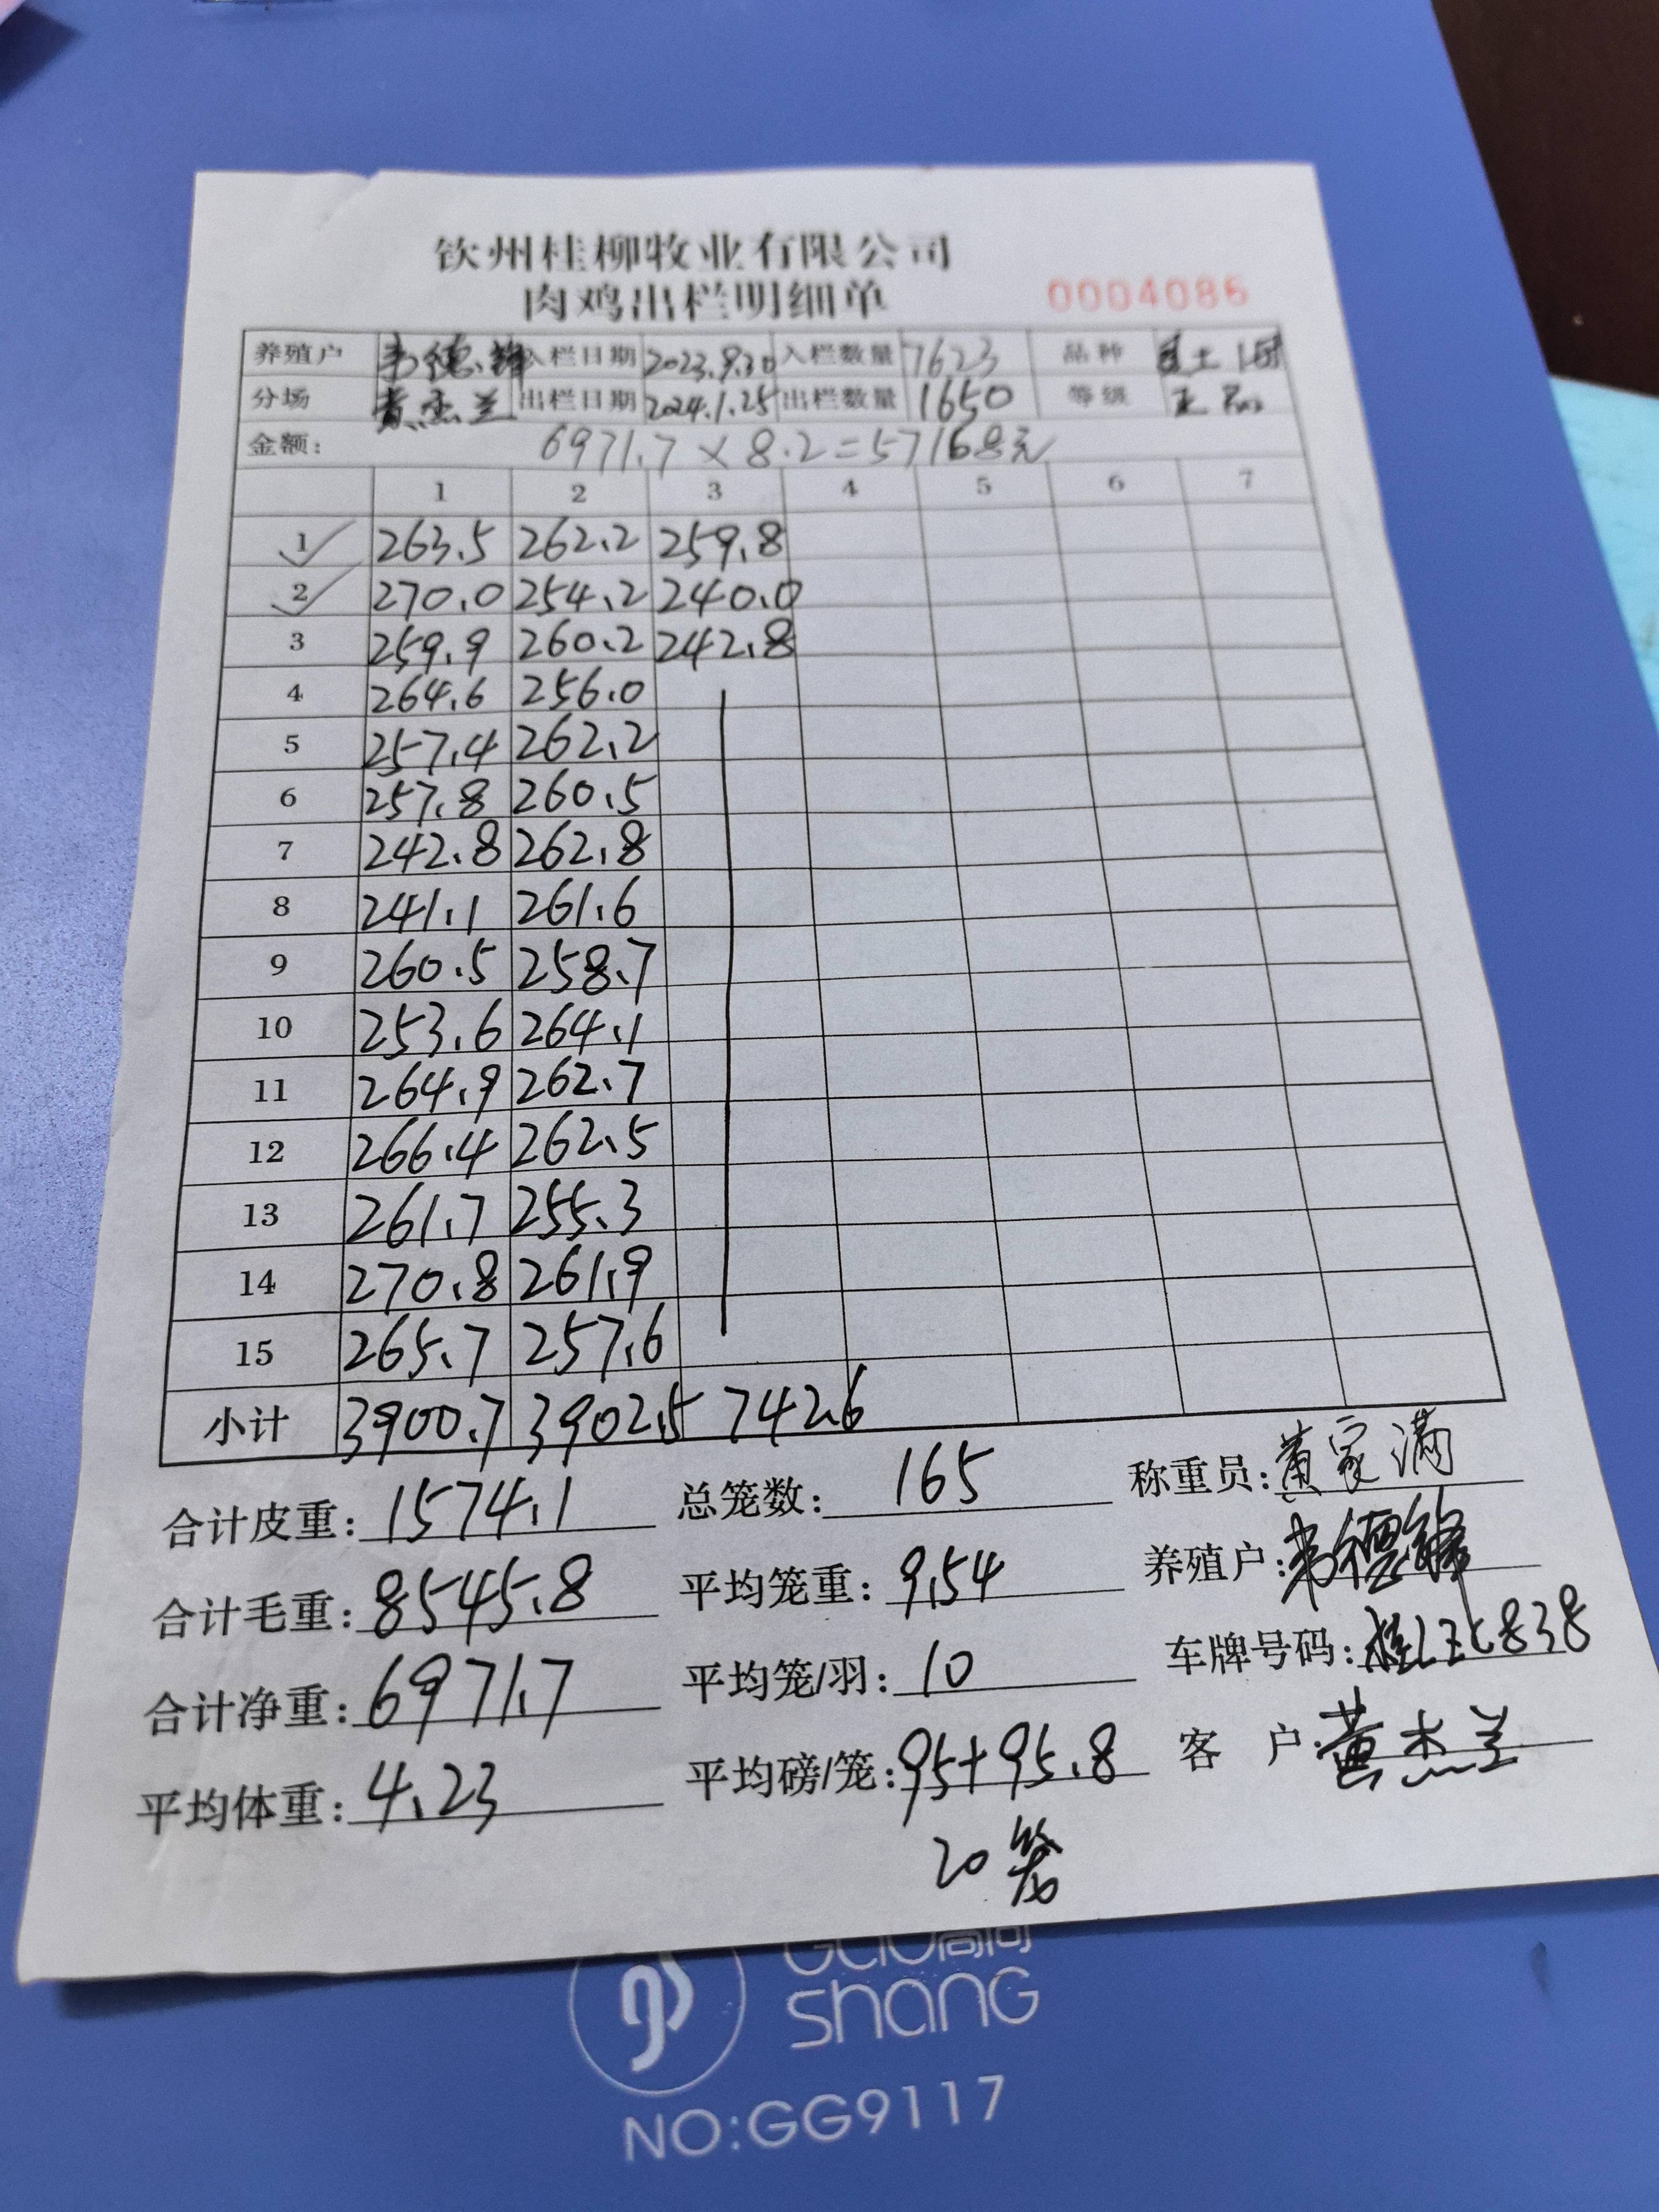 钦州桂柳牧业有限公司
肉鸡出栏明细单 0004086
养殖户 韦德锋 入栏日期 2023.9.30 入栏数量 7623 品种 土
分场 黄杰兰 出栏日期 2024.1.25 出栏数量 1650 等级 正品
金额: 6971.7×8.2=57168元
1 2 3 4 5 6 7
1 263.5 262.2 259.8
2 270.0 254.2 240.0
3 259.9 260.2 242.8
4 264.6 256.0
5 257.4 262.2
6 257.8 260.5
7 242.8 262.8
8 241.1 261.6
9 260.5 258.7
10 253.6 264.1
11 264.9 262.7
12 266.4 262.5
13 261.7 255.3
14 270.8 261.9
15 265.7 257.6
小计 3900.7 3902.5 742.6
合计皮重: 1574.1 总笼数: 165 称重员: 黄家满
合计毛重: 8545.8 平均笼重: 9.54 养殖户: 韦德锋
合计净重: 6971.7 平均笼/羽: 10 车牌号码:
平均体重: 4.23 平均磅/笼: 95+95.8 客 户: 黄杰兰
20笼
GAO高尚
SHANG
NO:GG9117